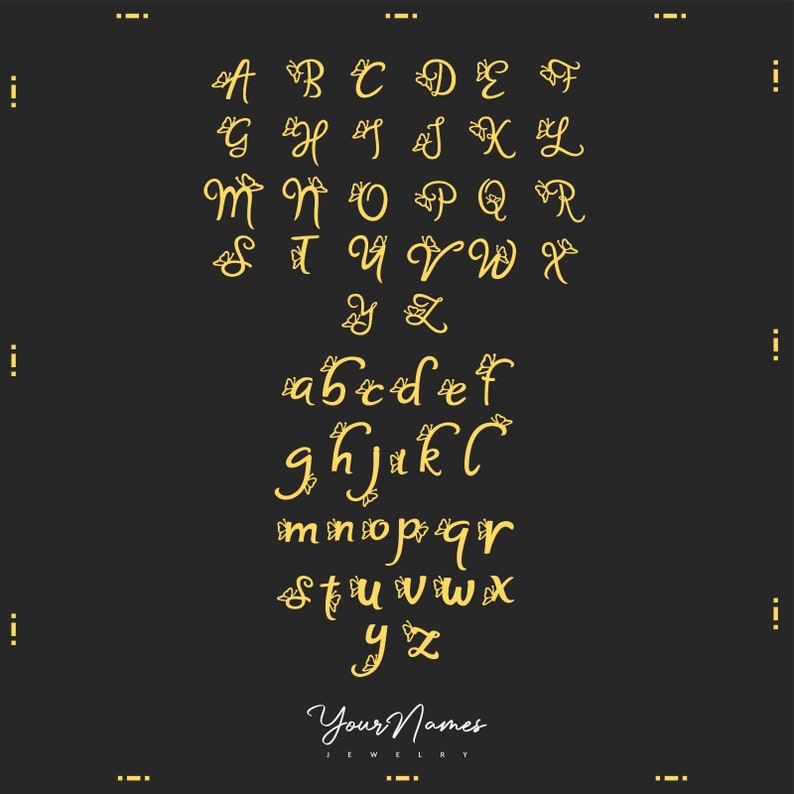 A B C D E F
G H I J K L
M N O P Q R
S T U V W X
Y Z
a b c d e f
g h j ı k l
m n o p q r
s t u v w x
y z
YourNames
JEWELRY